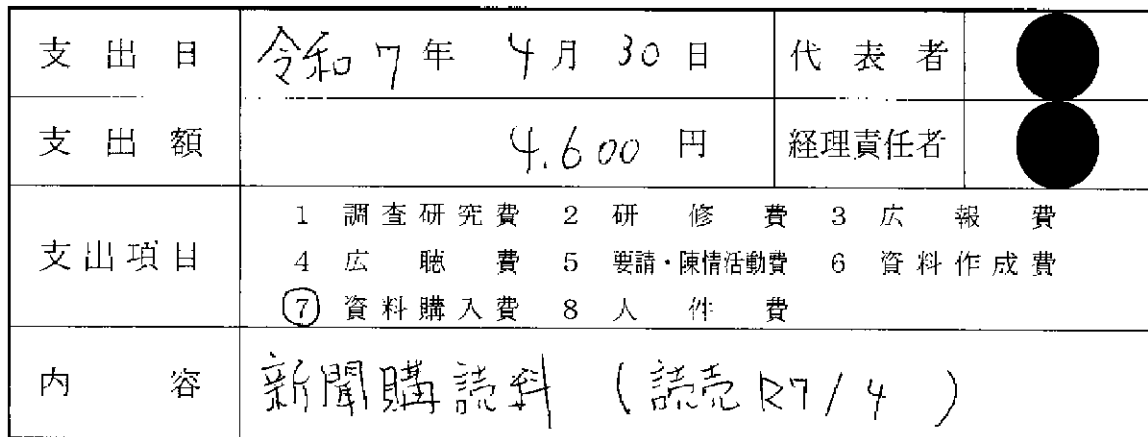 支出日 令和7年 4月30日 代表者
支出額 4.600円 経理責任者
支出項目 1 調査研究費 2 研修費 3 広報費
4 広聴費 5 要請・陳情活動費 6 資料作成費
⑦ 資料購入費 8 人件費
内容 新聞購読料 (読売R7/4 )